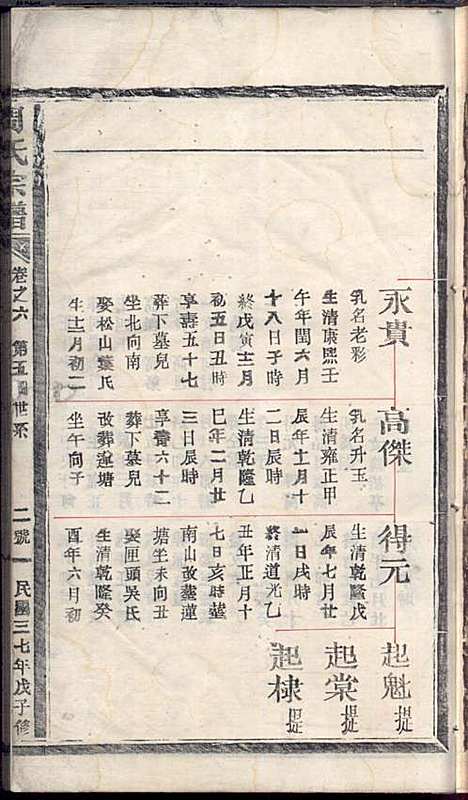 永貴
乳名老彩
生清康熙壬
午年閏六月
十八日子時
終戊寅十二月
初五日丑時
享壽五十七
葬下墓兒
坐北向南
娶松山葉氏
生十一月初二
高傑
乳名升玉
生清雍正甲
辰年十一月十
二日辰時
生清乾隆乙
巳年二月廿
三日辰時
享壽六十二
葬下墓兒
改葬蓮塘
坐午向子
得元
生清乾隆戊
辰年七月廿
一日戌時
終清道光乙
丑年正月十
七日亥時葬
南山改葬蓮
塘坐未向丑
娶匣頭吳氏
生清乾隆癸
酉年六月初
起魁 提
起棠 提
起棣 提
周氏宗譜 卷之六 第五 世系 二號 民國三七年戊子修